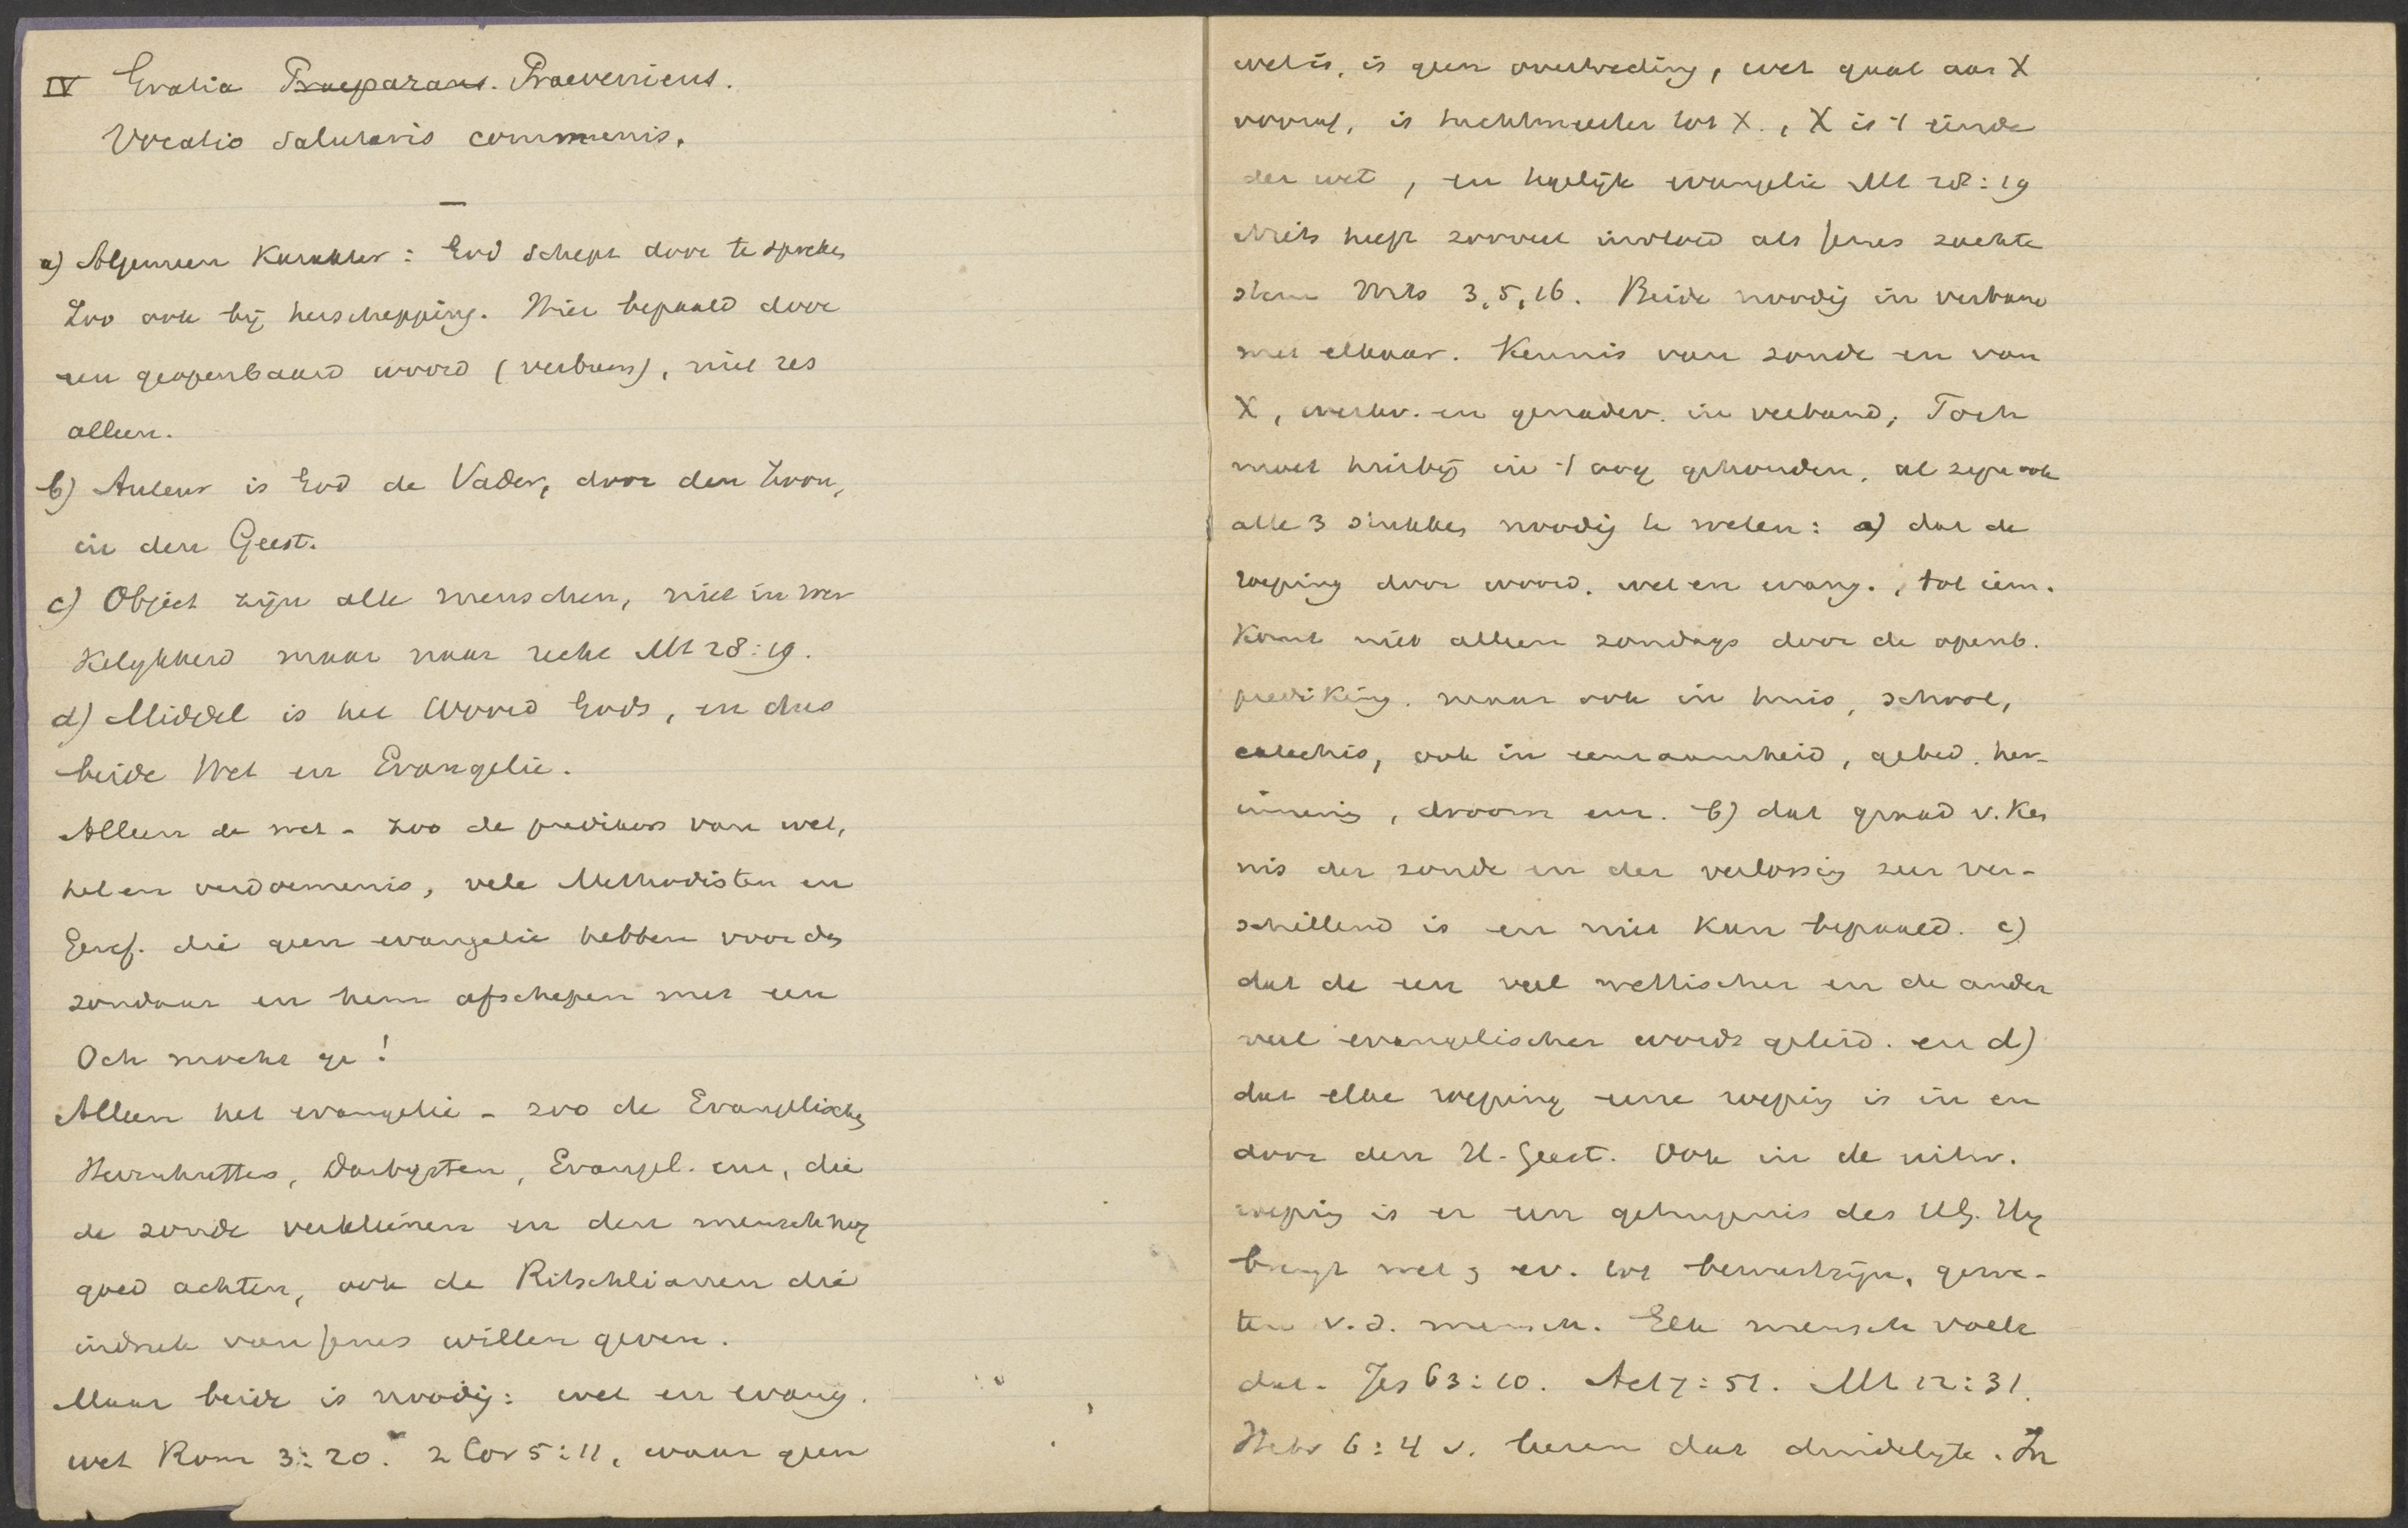 IV Gratia Praeparans. Praeveniens.
Vocatio Salutaris communis.
—
a) Algemeen Karakter: God schept door te spreken
Zoo ook bij herschepping. Hier bepaald door
een geopenbaard woord (verbum), niet res
alleen.
b) Auteur is God de Vader, door den Zoon,
in den Geest.
c) Object zijn alle menschen, niet in wer
kelykheid maar naar recht Mt 28:19.
d) Middel is het Woord Gods, en dus
beide Wet en Evangelie.
Alleen de wet - zoo de predikers van wet,
hel en verdoemenis, vele Methodisten en
Geref. die geen evangelie hebben voor den
zondaar en hem afschepen met een
Och mocht ge!
Alleen het evangelie - zoo de Evangelischen
Hernhutters, Darbysten, Evangel. enz, die
de zonde verkleinen en den mensch nog
goed achten, ook de Ritschlianen die
indruk van Jezus willen geven.
Maar beide is noodig: wet en evang.
wet Rom 3:20. 2 Cor 5:11, waar geen
wet is, is geen overtreding, wet gaat aan X
vooraf, is tuchtmeester tot X., X is 't einde
der wet, en tegelijk evangelie Mt 28:19
Niets heeft zooveel invloed als Jezus zachte
stem 3,5,16. Beide noodig in verband
met elkaar. Kennis van zonde en van
X, werkv. en genadev. in verband; Toch
moet hierbij in 't oog gehouden, al zijn ook
alle 3 stukken noodig te weten: a) dat de
roeping door woord, wet en evang., tot iem.
komt niet alleen zondags door de openb.
prediking. maar ook in huis, school,
catechis, ook in eenzaamheid, gebed, her-
innering, droom enz. b) dat graad v. ken
nis der zonde en der verlossing zeer ver-
schillend is en niet kan bepaald. c)
dat de een veel wettischer en de ander
veel evangelischer wordt geleid. en d)
dat elke roeping eene roeping is in en
door den H. Geest. Ook in de uitw.
roeping is er een getuigenis des HG. Hij
brengt wet en ev. tot bewustzijn, gewe-
ten v.d. mensch. Elk mensch voelt
dat. Jes 63:10. Act 7:51. Mt 12:31.
Hebr 6:4 v. leeren dat duidelijk. In